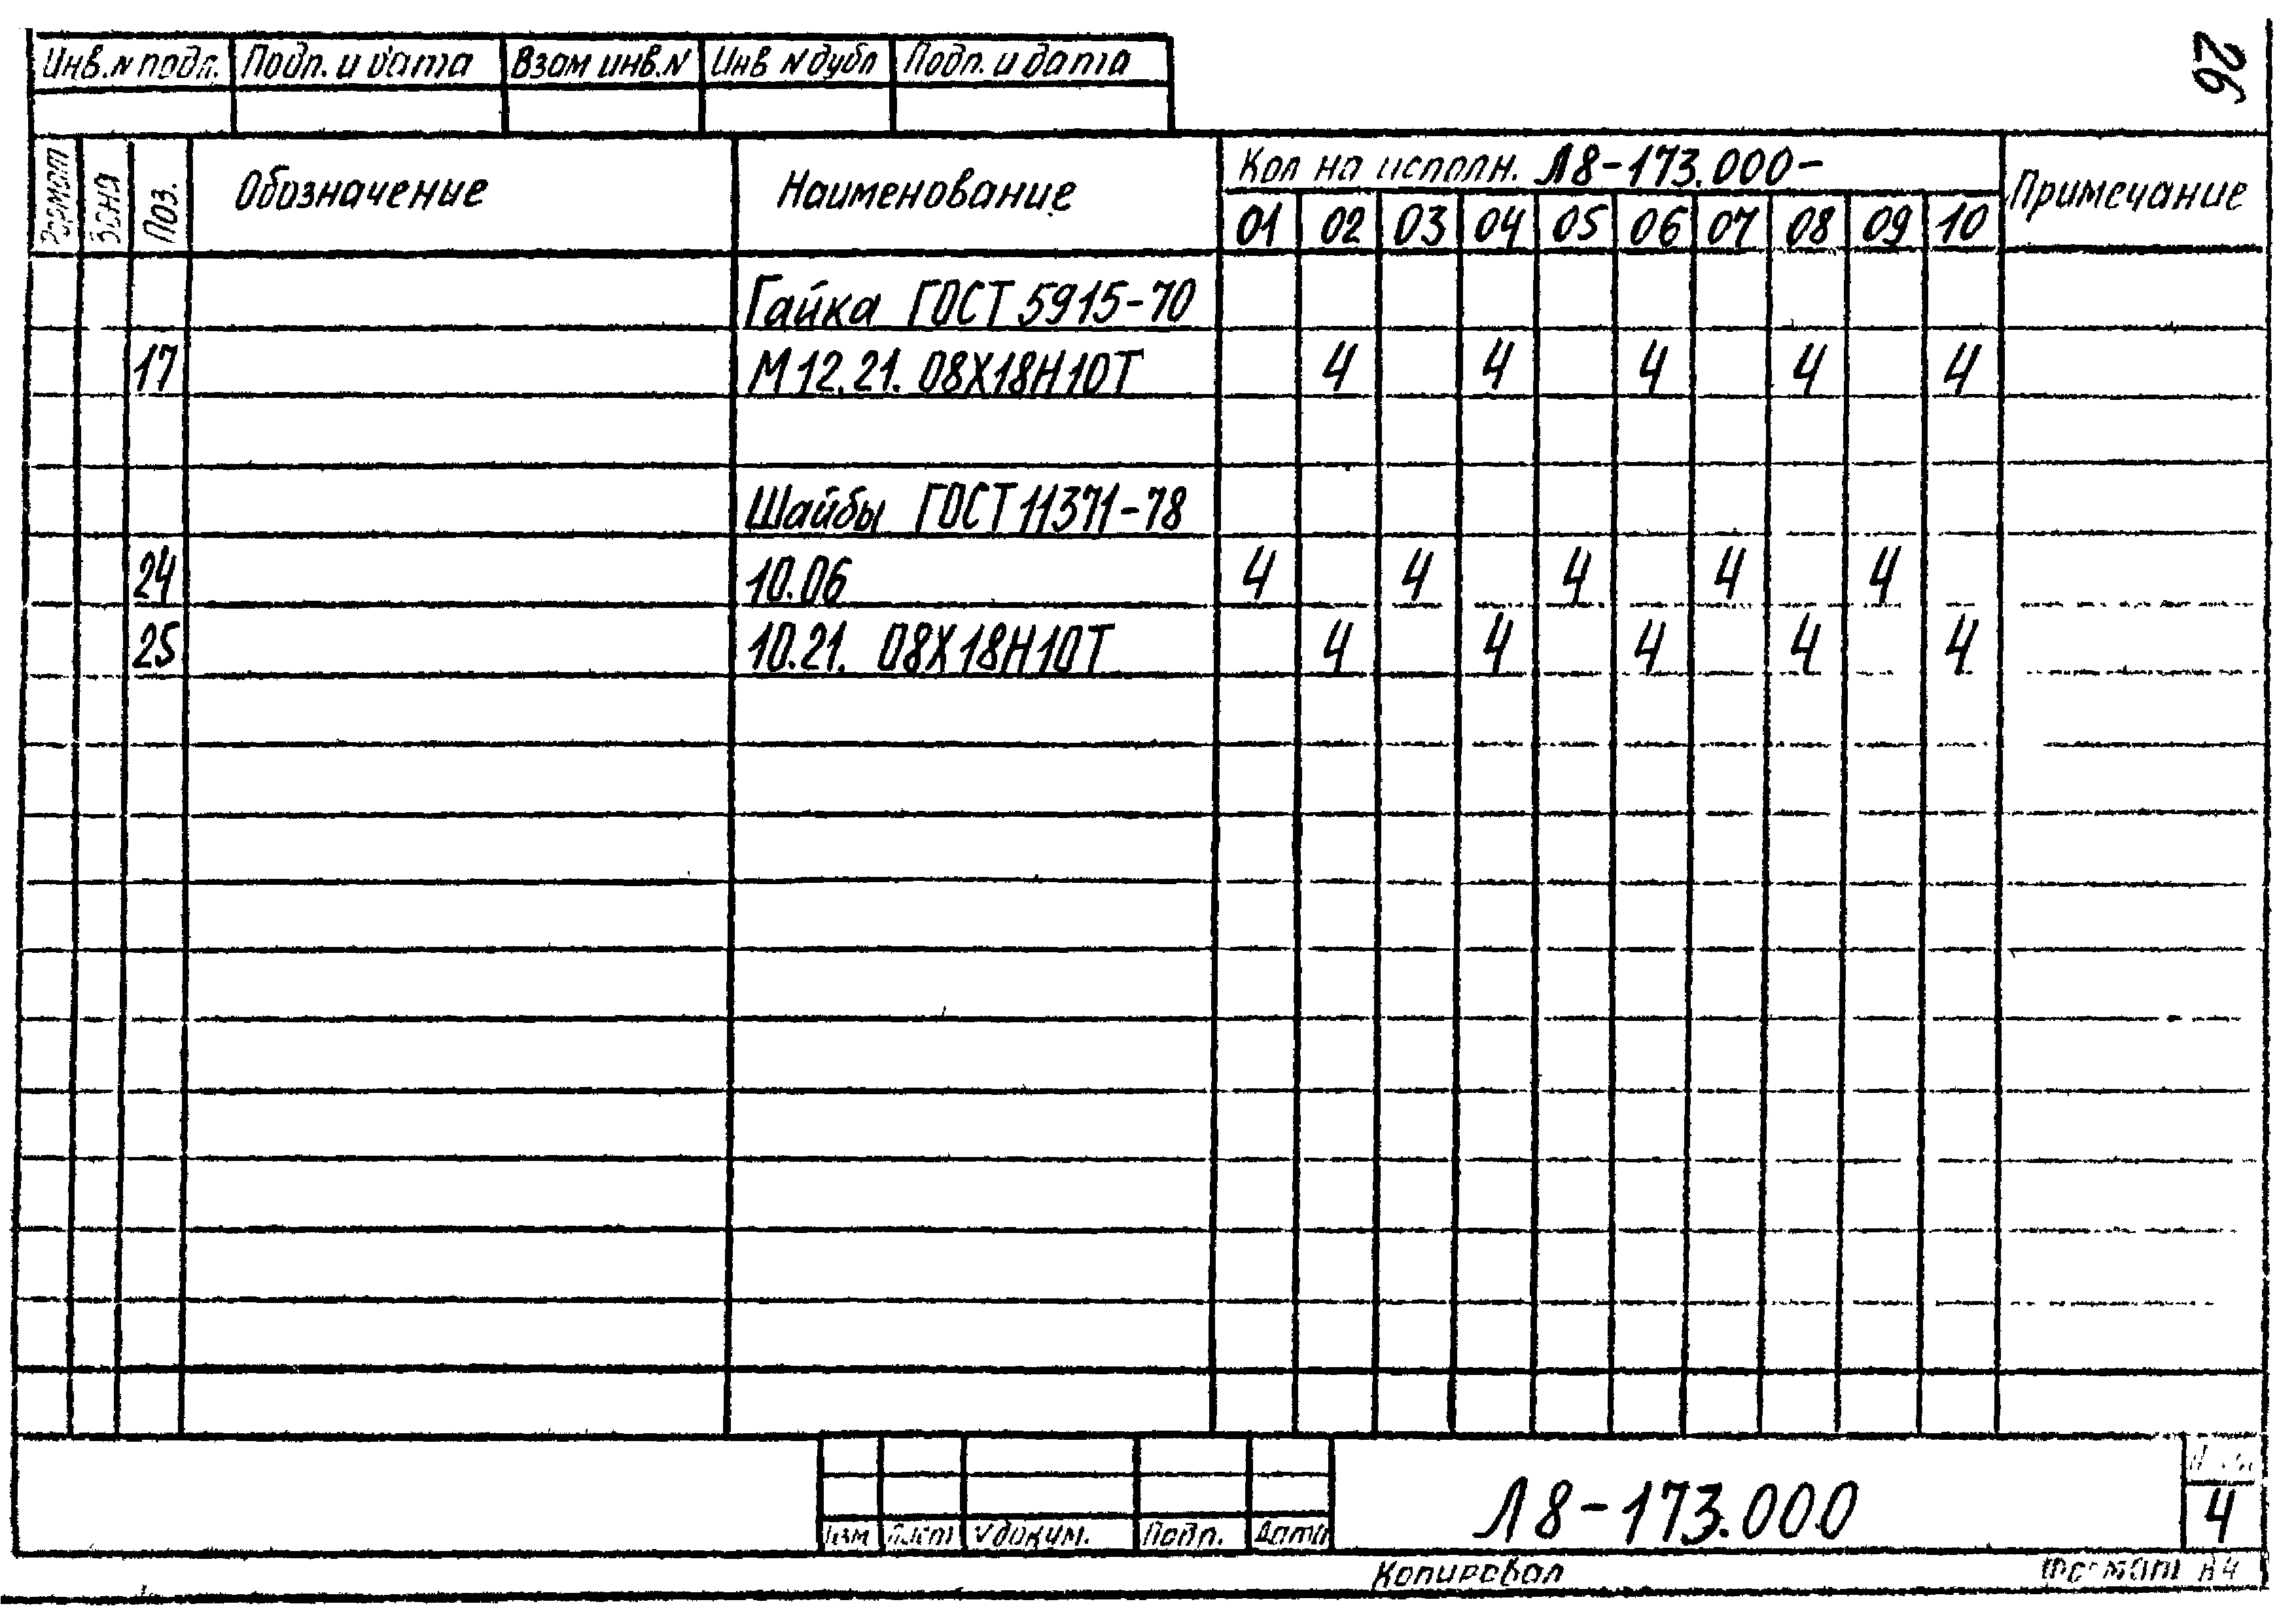 26
Инв.N подл. Подп. и дата Взам инв.N Инв N дубл Подп. и дата
Формат Зона Поз. Обозначение Наименование Кол на исполн. Л8-173.000- Примечание
01 02 03 04 05 06 07 08 09 10
Гайка ГОСТ 5915-70
17 М12.21.08Х18Н10Т 4 4 4 4 4
Шайбы ГОСТ 11371-78
24 10.06 4 4 4 4 4
25 10.21. 08Х18Н10Т 4 4 4 4 4
Л8-173.000
4
Изм Лист N докум. Подп. Дата
Копировал Формат А4